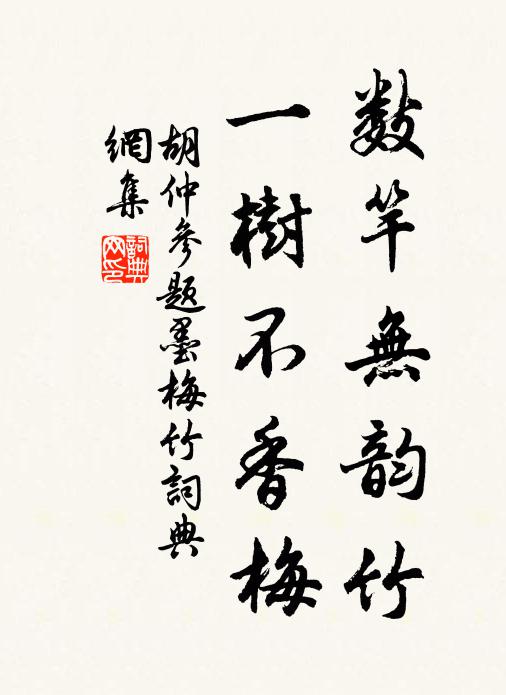 數竿無韵竹
一樹不香梅
胡仲參題墨梅竹詞典
網集
詞典
网印